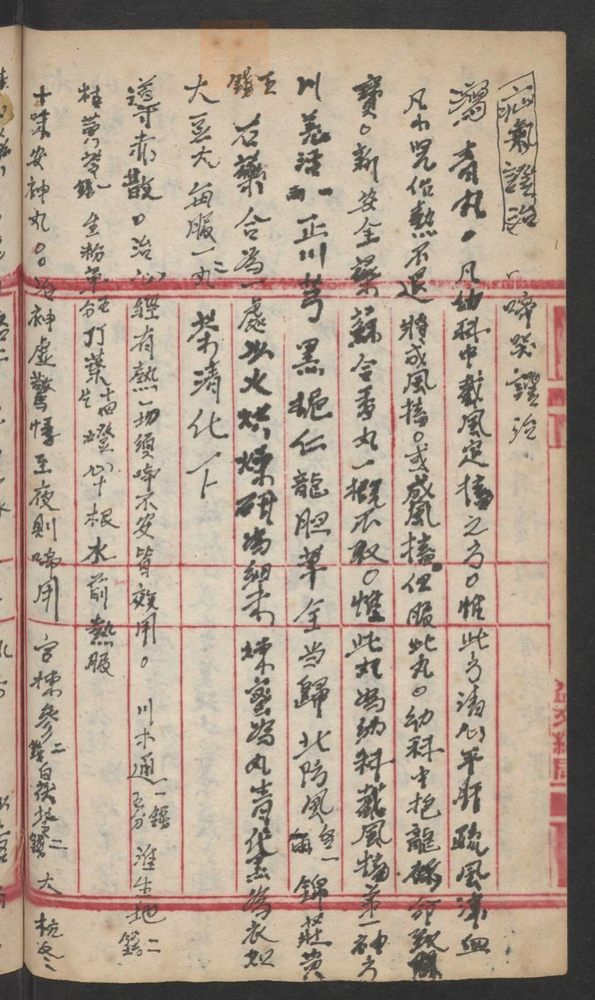 疝氣證治
啼哭證治
瀉青丸。凡幼科中截風定搐之方。惟此方清心平肝疏風凉血
凡小児俗熱不退將成風搐。或成風搐但服此丸。幼科中抱龍
寶。新安全 蘇合香丸一概不取。惟此丸為幼科截風搐第一神方
川羌活 一両 正川芎 黑梔仁 龍胆草 全当歸 北防風 各一両 錦莊黄
五錢 右藥合為一處以火烘燥研為細末煉蜜為丸青黛為衣如
大豆大每服一二丸茶清化下
導赤散。治心經有熱一切煩啼不安皆效用。川木通 一錢五分 淮生地 二錢
枯黄芩 一錢 生粉草 五分 灯草 燈心十根水煎熱服
十味安神丸。治神虛驚悸至夜則啼用 官揀參 二錢 白茯苓 二錢 大杭冬